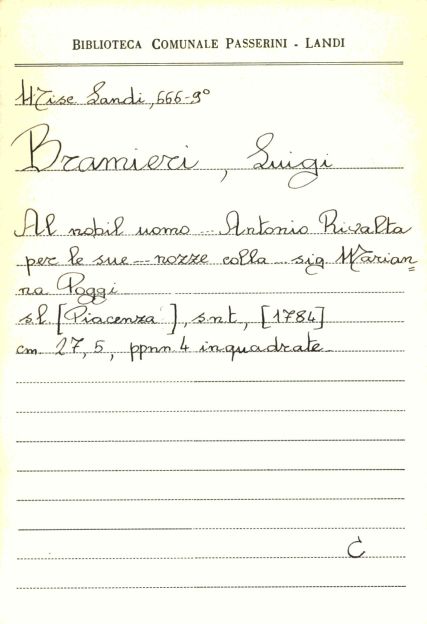 BIBLIOTECA COMUNALE PASSERINI - LANDI
Misc Landi, 666-9°
Bramieri, Luigi
Al nobil uomo ... Antonio Rivalta
per le sue ... nozze colla ... sig. Marian=
na Poggi
s.l. [Piacenza], s.n.t., [1784]
cm. 27,5, ppnn. 4 inquadrate.
C